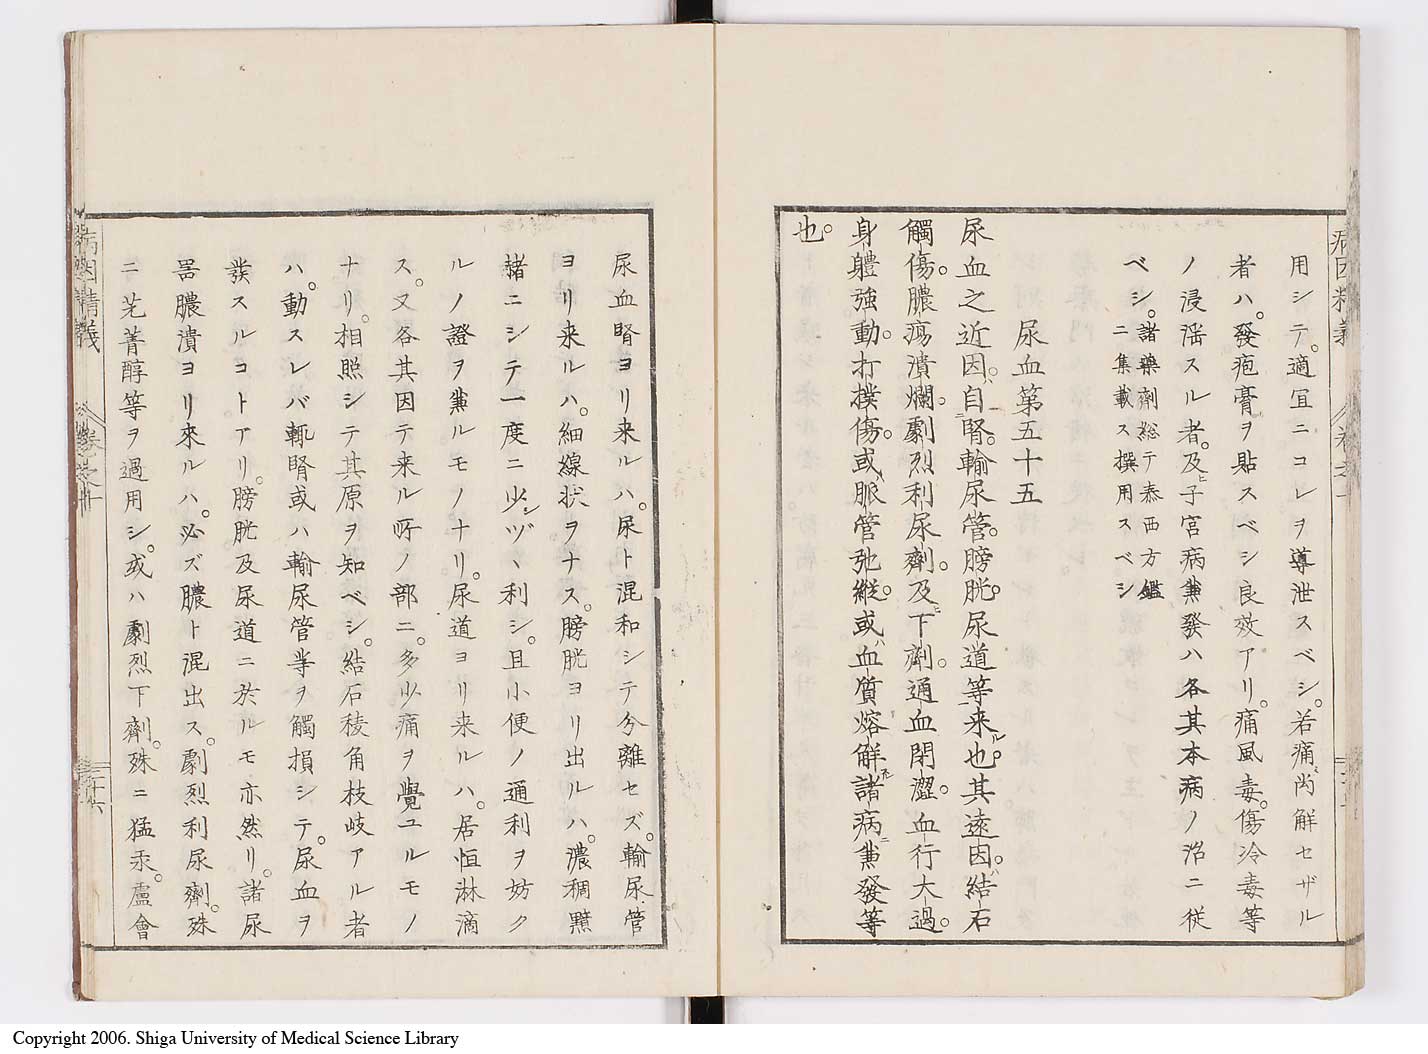 病因精義
用シテ。適宜ニコレヲ導泄スベシ。若痛尚解セザル
者ハ。發疱膏ヲ貼スベシ良效アリ。痛風毒。傷冷毒等
ノ浸淫スル者。及ヒ子宮病兼發ハ各其本病ノ治ニ従
ベシ。諸藥劑総テ泰西方鑑
ニ集載ス撰用スベシ
尿血第五十五
尿血之近因。自腎。輸尿管。膀胱。尿道等来ル也。其遠因ハ。結石
觸傷。膿瘍潰爛。劇烈利尿劑。及ニ下劑。通血閉澀。血行大過。
身軆強動。打撲傷。或ハ脈管弛縦。或ハ血質熔解諸病ニ兼發等
也。
尿血腎ヨリ来ルハ。尿ト混和シテ分離セズ。輸尿管
ヨリ来ルハ。細線状ヲナス。膀胱ヨリ出ルハ。濃稠黙
赭ニシテ一度ニ少シヅヽ利シ。且小便ノ通利ヲ妨ク
ルノ證ヲ兼ルモノナリ。尿道ヨリ来ルハ。居恒淋滴
ス。又各其因テ来ル所ノ部ニ。多少痛ヲ覺ユルモノ
ナリ。相照シテ其原ヲ知ベシ。結石稜角枝岐アル者
ハ。動スレバ輒腎或ハ輸尿管等ヲ觸損シテ。尿血ヲ
發スルコトアリ。膀胱及尿道ニ於ルモ亦然リ。諸尿
器膿潰ヨリ來ルハ。必ズ膿ト混出ス。劇烈利尿劑。殊
ニ芫菁醇等ヲ過用シ。或ハ劇烈下劑。殊ニ猛汞。盧會
病因精義
二十六